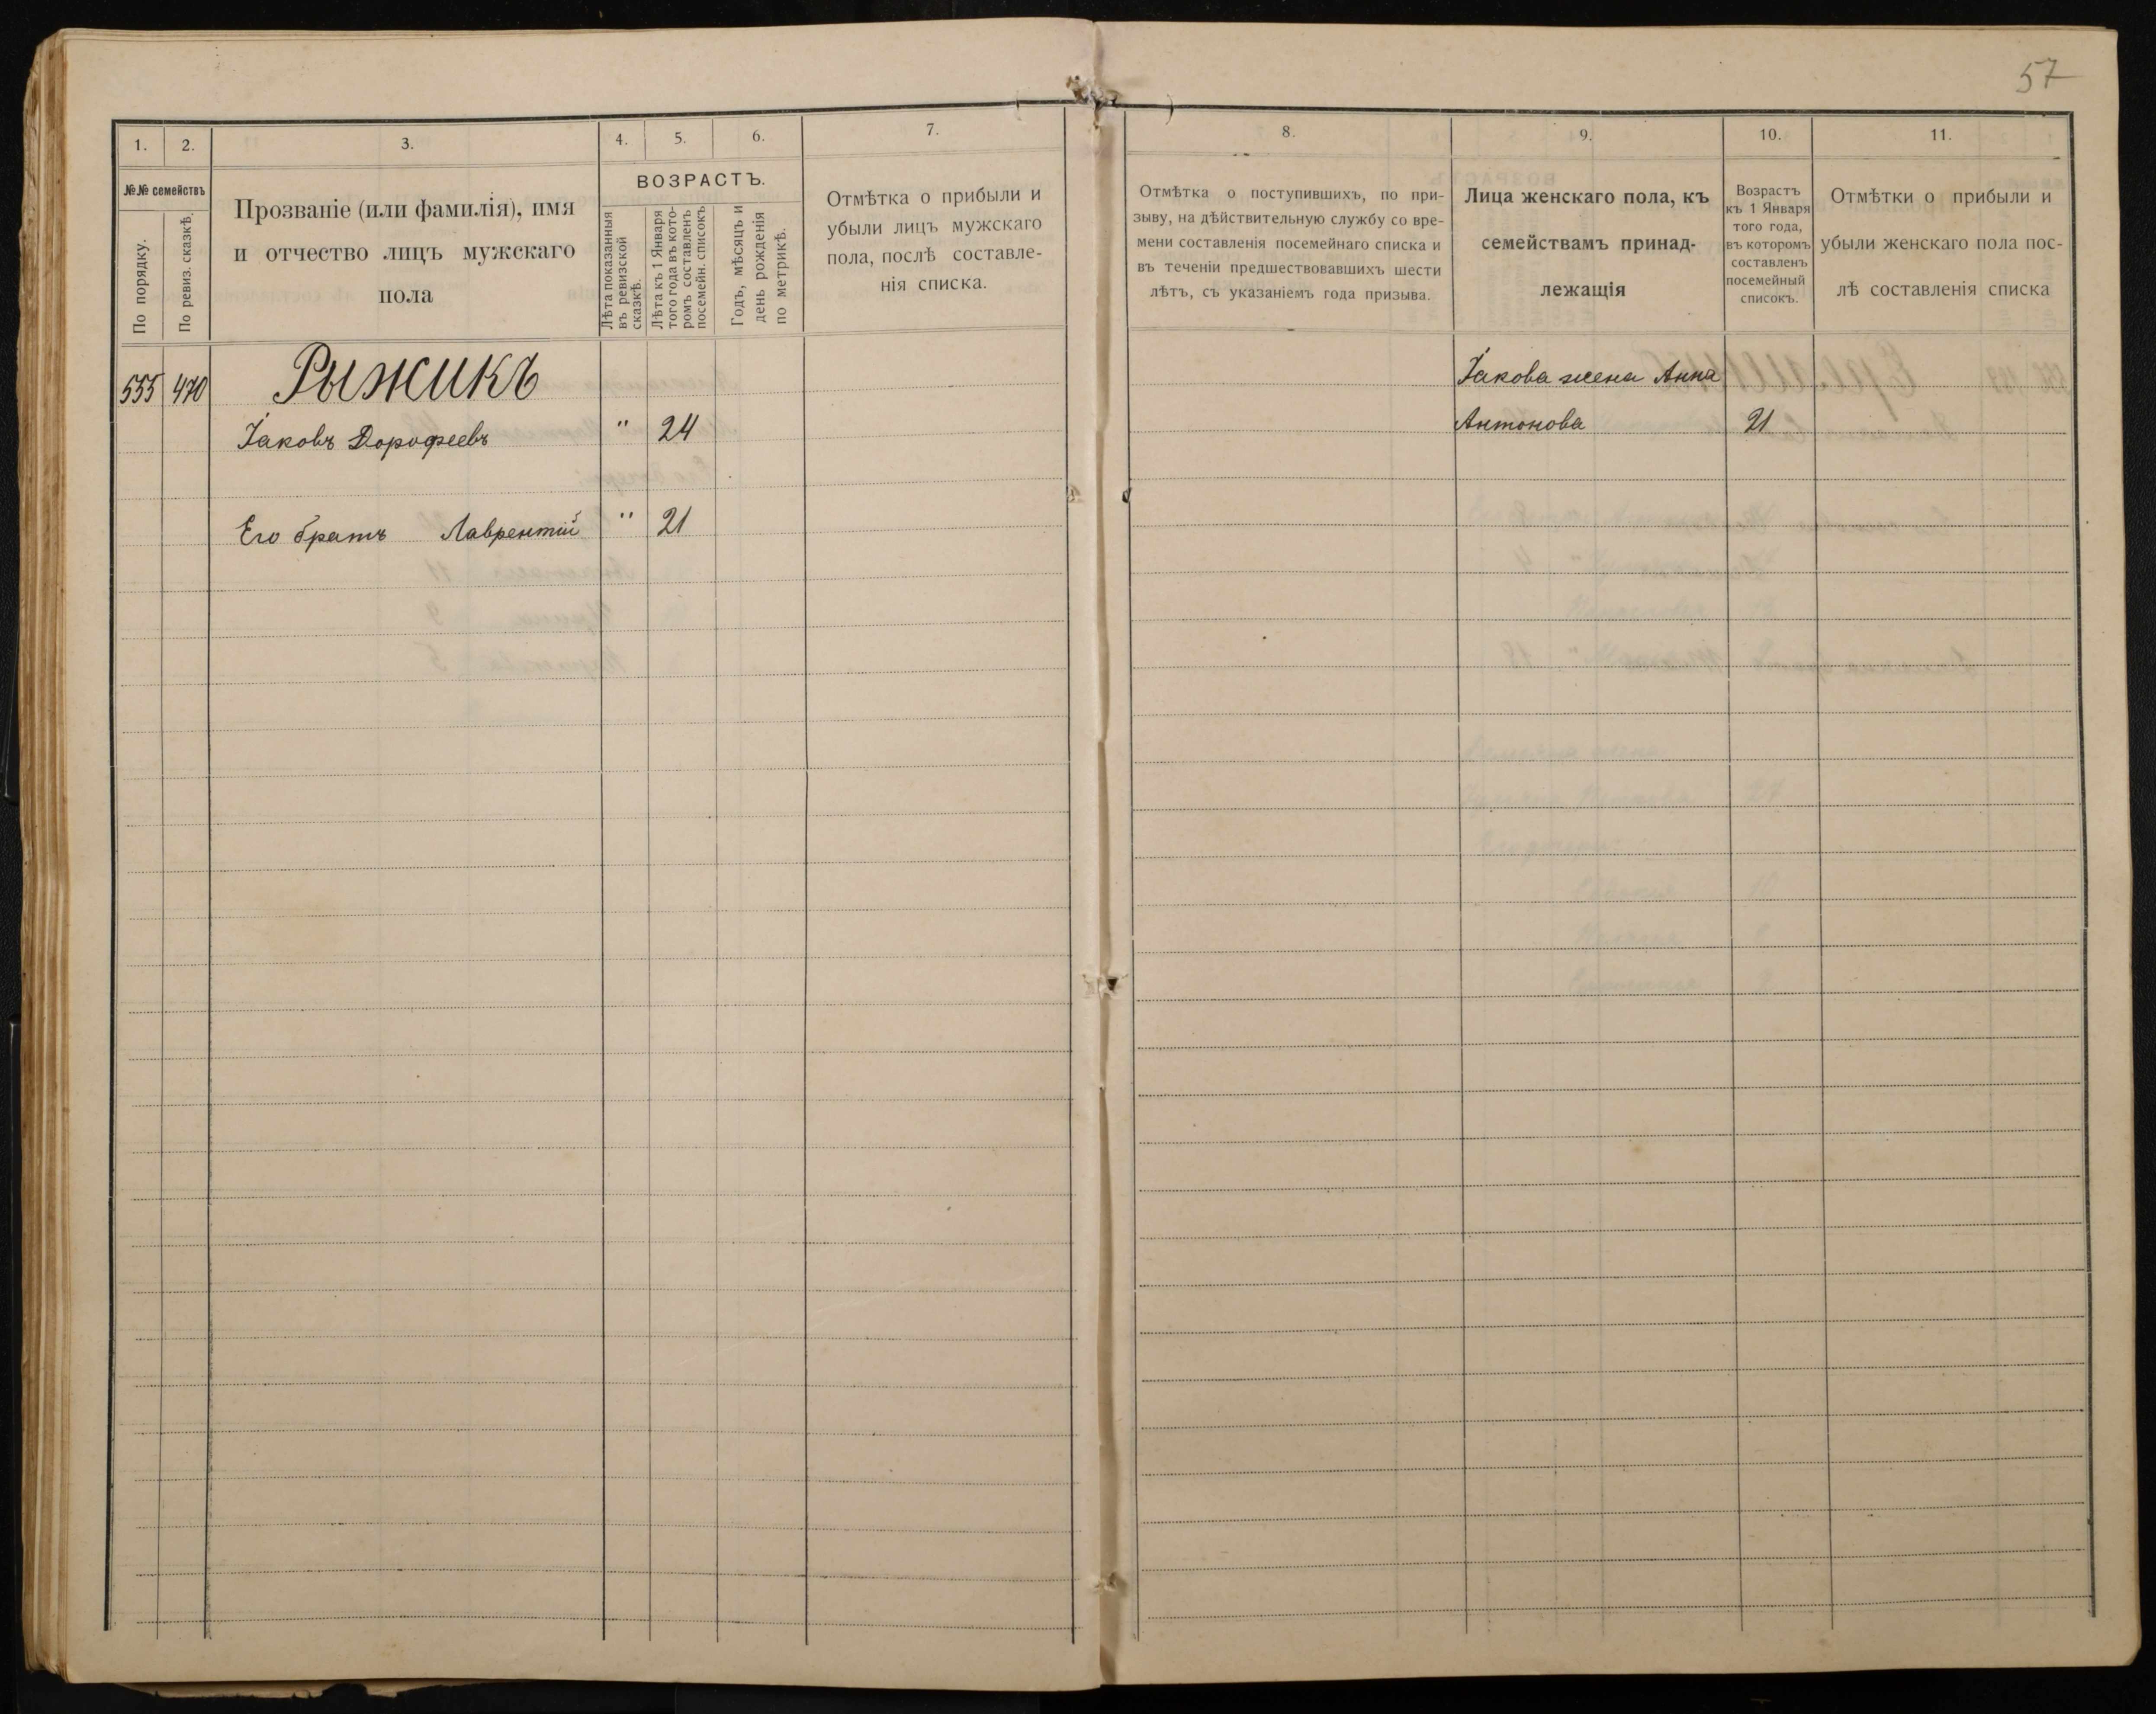 57
1. 2. 3. 4. 5. 6. 7.
№№ семействъ
По порядку.
По ревиз. сказкѣ.
Прозваніе (или фамилія), имя
и отчество лицъ мужскаго
пола
ВОЗРАСТЪ.
Лѣта показанныя
въ ревизской
сказкѣ.
Лѣта къ 1 Января
того года въ кото-
ромъ составленъ
посемейн. списокъ
Годъ, мѣсяцъ и
день рожденія
по метрикѣ.
Отмѣтка о прибыли и
убыли лицъ мужскаго
пола, послѣ составле-
нія списка.
555 470 Рыжикъ
Іаковъ Дорофеевъ " 24
Его братъ Лаврентій " 21
8. 9. 10. 11.
Отмѣтка о поступившихъ, по при-
зыву, на дѣйствительную службу со вре-
мени составленія посемейнаго списка и
въ теченіи предшествовавшихъ шести
лѣтъ, съ указаніемъ года призыва.
Лица женскаго пола, къ
семействамъ принад-
лежащія
Возрастъ
къ 1 Января
того года,
въ которомъ
составленъ
посемейный
списокъ.
Отмѣтки о прибыли и
убыли женскаго пола пос-
лѣ составленія списка
Іакова жена Анна
Антонова 21